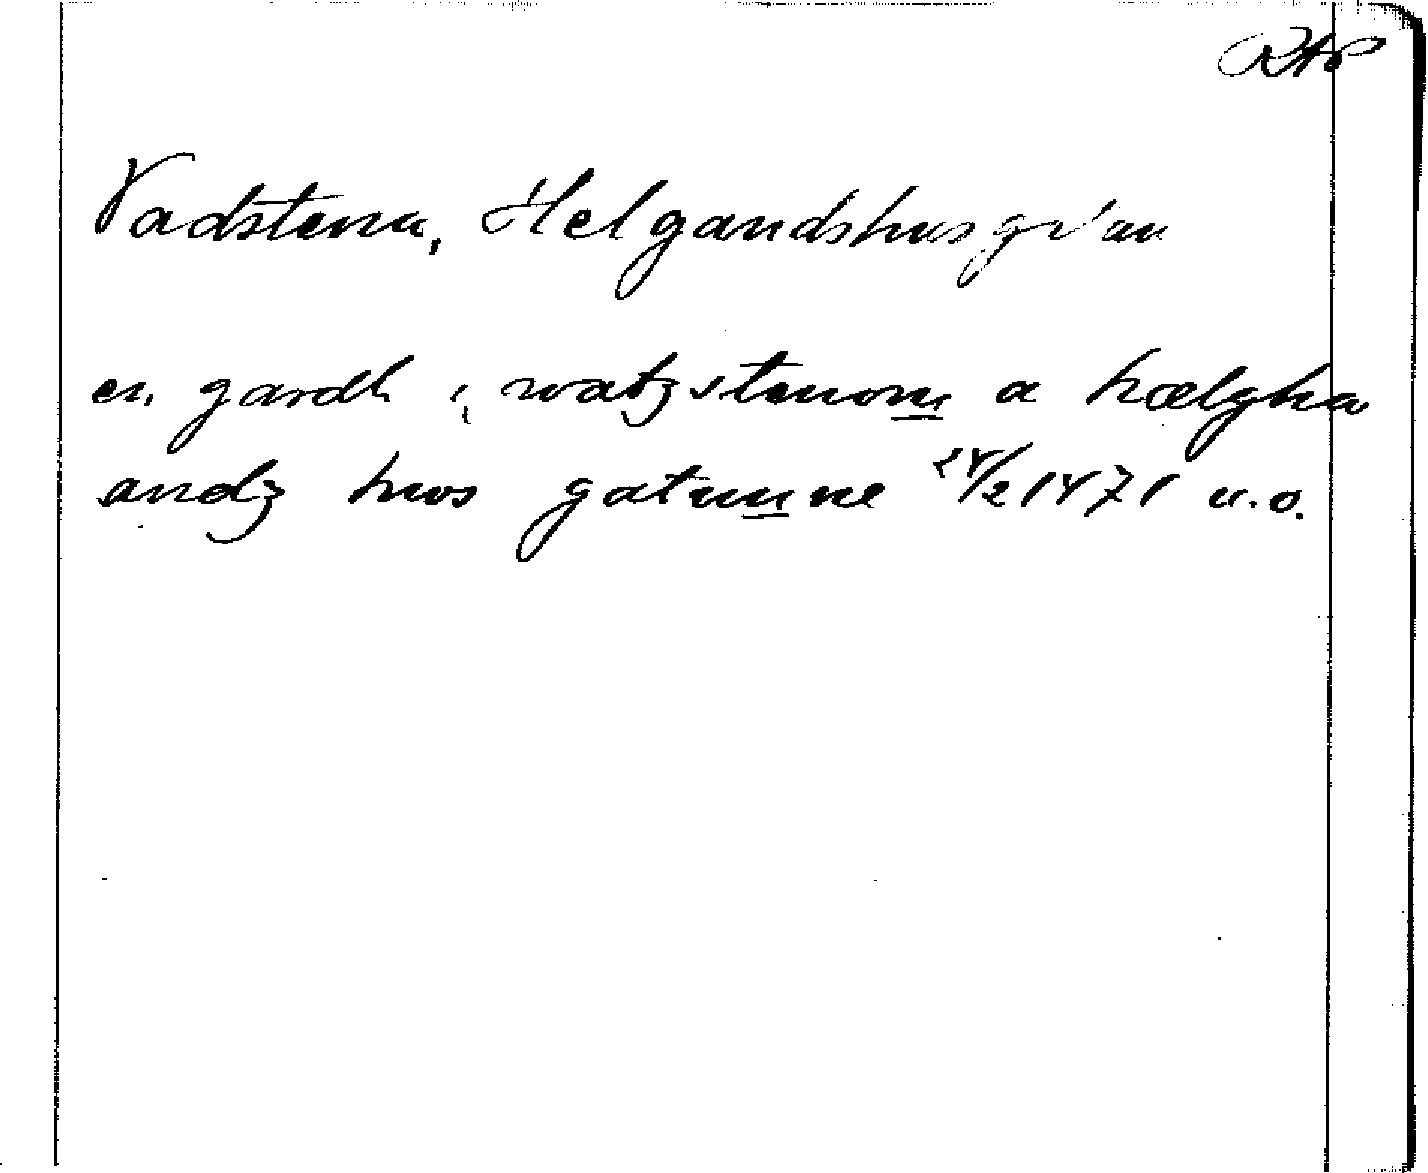 RAp
Vadstena, Helgandshusgr'an
en gardh i watzstenom a hælgha
andz hws gatunne 24/2 1471 u.o.